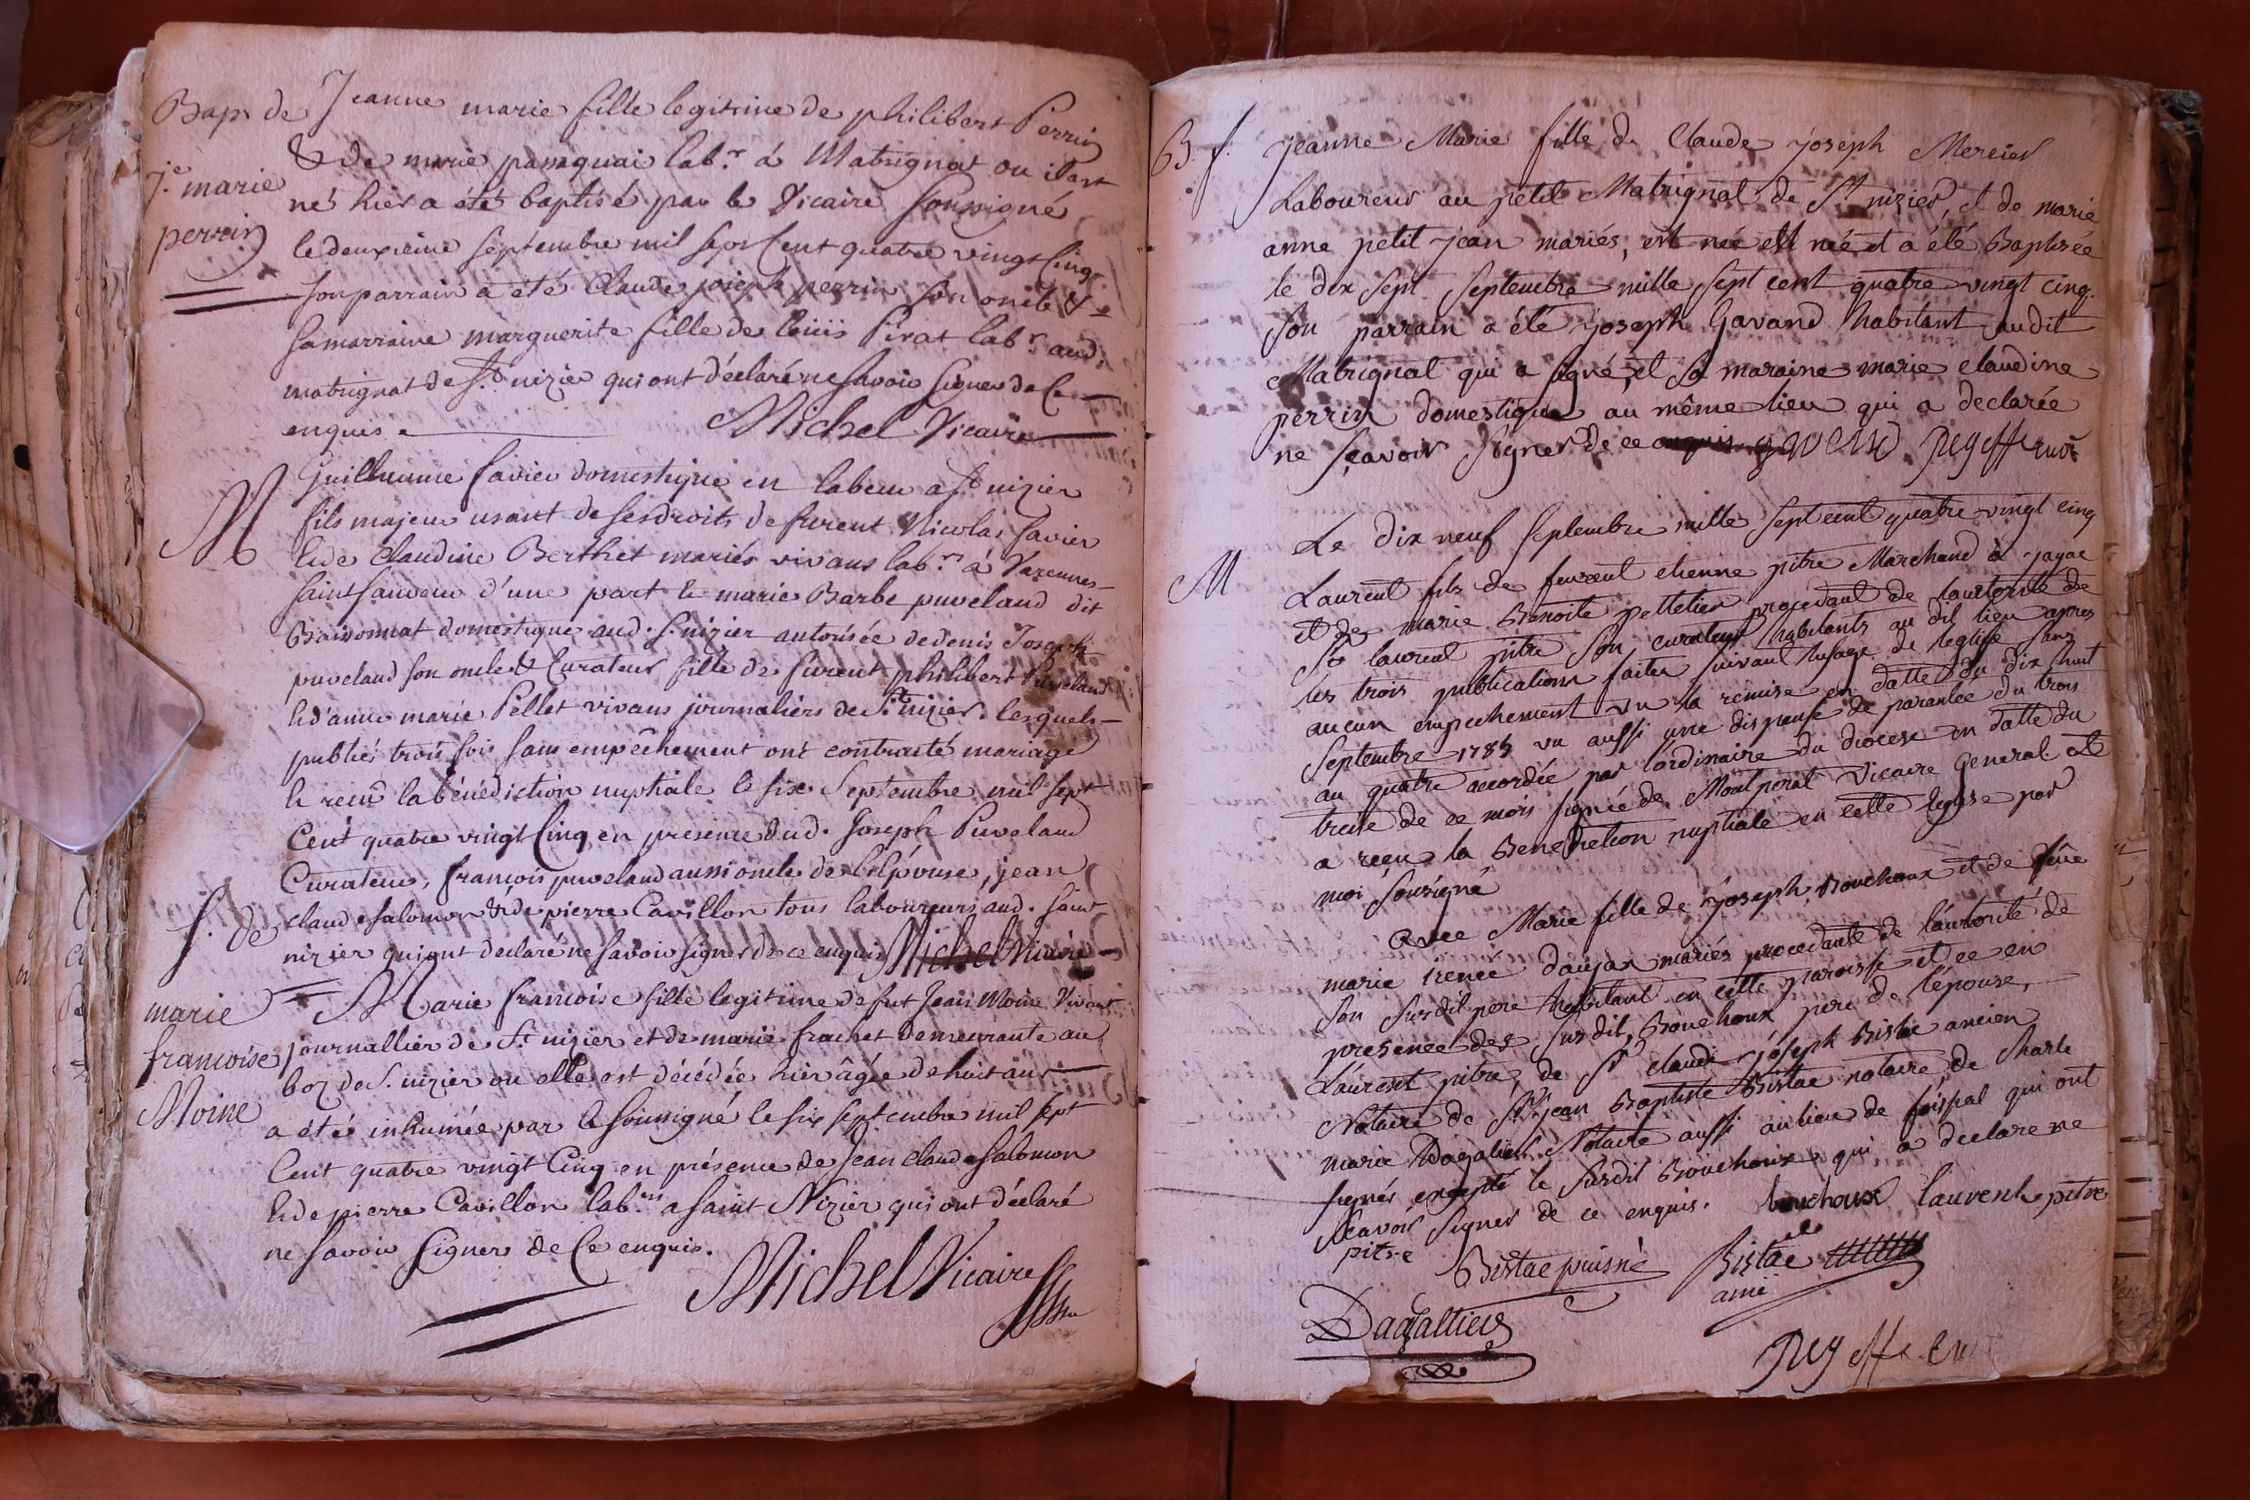 Bapt de
Je marie
perrin
Jeanne marie fille legitime de philibert Perrin
& de marie pamquai labr à Matrignat ou il est
né hier a été baptisé par le Vicaire soussigné
le deuxieme septembre mil sept Cent quatre vingt Cinq
son parrain a été Claude joseph perrin son oncle &
sa marraine marguerite fille de louis Pirat labr aud.
matrignat de St nizier qui ont déclaré ne savoir signer de Ce
enquis. Michel Vicaire
M
Guillaume favier domestique en labeur a St nizier
fils majeur usant de ses droits de furent Nicolas favier
& de Claudine Berthet mariés vivans labrs à Varennes
saint sauveur d'une part & marie Barbe puveland dit
Baisonnat domestique aud. St nizier autorisée de denis Joseph
puveland son oncle & Curateur fille de furent philibert Puveland
& d'anne marie Pellet vivans journaliers de St nizier. lesquels
publiés trois fois sans empêchement ont contracté mariage
& recu la bénédiction nuptiale le six Septembre mil sept
Cent quatre vingt Cinq en presence dud. Joseph Puveland
Curateur, françois puveland aussi oncle de l'épouse, jean
claude salomon & de pierre Cavillon tous laboureurs aud. saint
nizier qui ont declaré ne savoir signer de ce enquis Michel Vicaire
S. de
marie
francoise
Moine
Marie francoise fille legitime de fut Jean Moine Vivant
journallier de St nizier et de marie frachet demeurante au
boz de S. nizier ou elle est décédée hier âgée de huit ans
a été inhumée par le soussigné le six septembre mil sept
Cent quatre vingt Cinq en présence de Jean claude salomon
& de pierre Cavillon labrs a saint Nizier qui ont déclaré
ne savoir signer de Ce enquis.
Michel Vicaire
B. f.
jeanne Marie fille de Claude joseph Mercier
Laboureur au petit Matrignat de St nizier, et de marie
anne petit jean mariés, est née est née et a été Baptisée
le dix sept Septembre mille sept cent quatre vingt cinq.
son parrain a été joseph Gavand habitant audit
Matrignat qui a signé, et sa maraine marie claudine
perrin domestique au même lieu qui a declarée
ne sçavoir signer de ce enquis
M
Le dix neuf Septembre mille sept cent quatre vingt cinq
Laurent fils de feurent etienne pitre Marchand à jayac
et de marie Benoite pelletier procedant de l'autorité de
St laurent pitre son curateur habitants au dit lieu apres
les trois publications faites suivant lusage de leglise sans
aucun empechement vu la remise en datte du dix huit
Septembre 1785 vu aussi une dispense de parantée du trois
au quatre accordée par l'ordinaire du diocese en datte du
treise de ce mois signée de Montperat Vicaire General et
a reçu la Benediction nuptiale en cette leglise par
moi sousigné
avec Marie fille de joseph Bouchoux et de feüe
marie irenee daujar mariés procedante de l'autorité de
son susdit pere habitant en cette paroisse et ce en
presence des susdit Bouchoux pere de l'épouse,
Laurent pitre, de St claude joseph Bistac ancien
Notaire de St jean Baptiste Bistac notaire de Charle
marie Dagalier Notaire aussi au lieu de foissiat qui ont
signés excepté le susdit Bouchoux qui a declare ne
sçavoir signer de ce enquis. bouchoux laurent pitre
pitre Bistac puisné Bistac
ainé
Dagallier